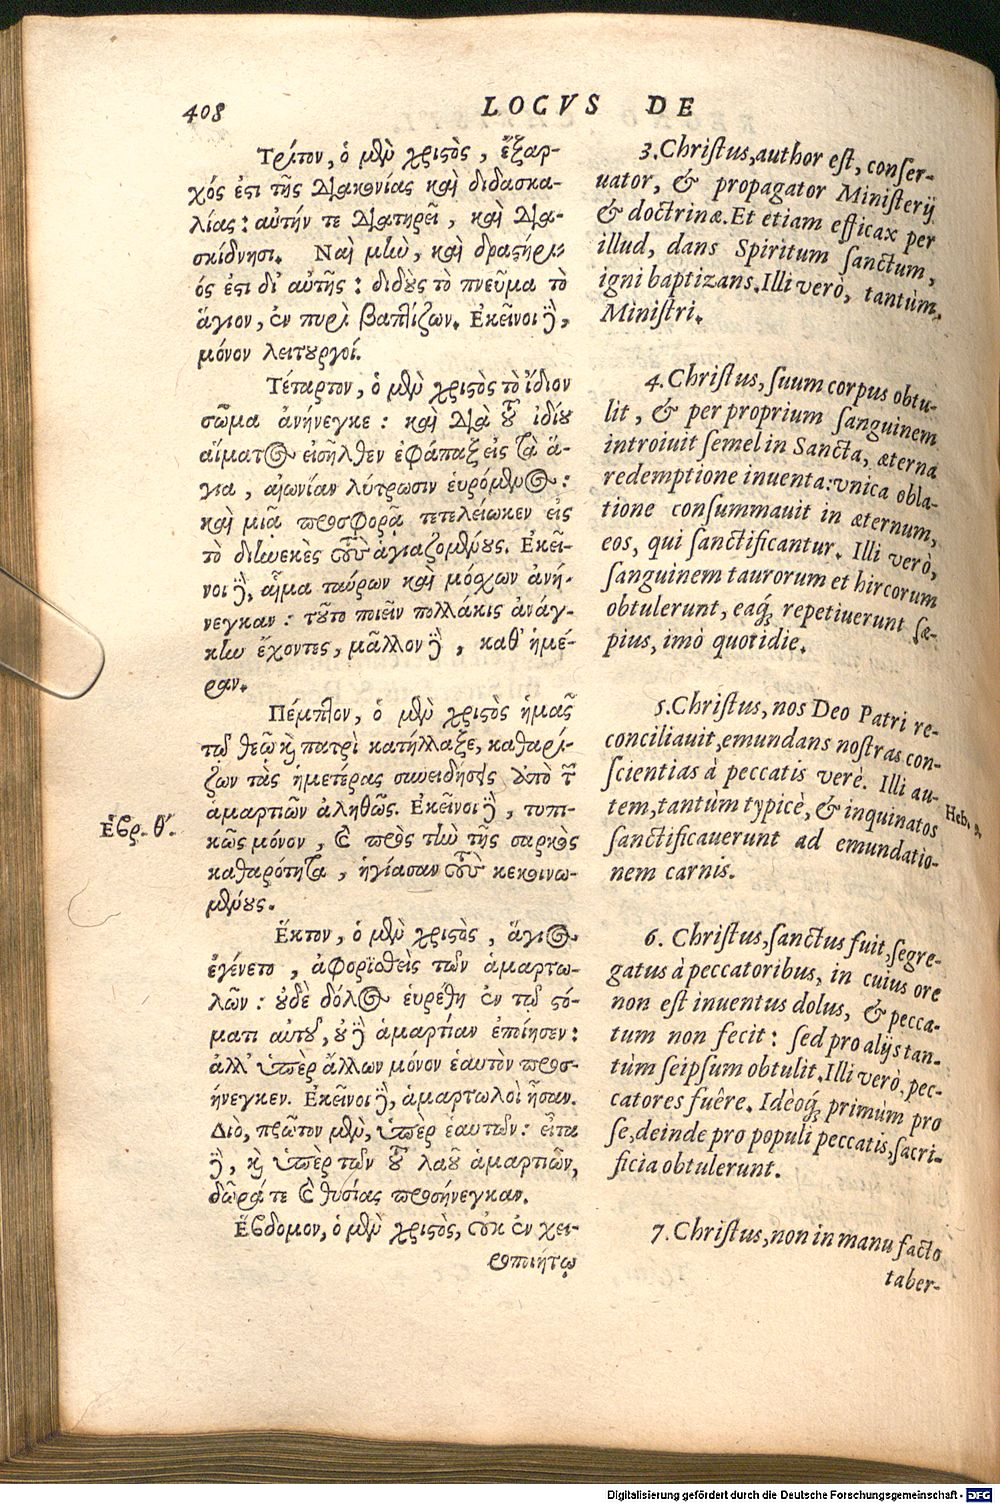 408
LOCVS DE
Τρίτον, ὁ μὲν χριστὸς, ἔξαρ-
χός ἐστι τῆς διακονίας καὶ διδασκα-
λίας: αὐτήν τε διατηρεῖ, καὶ δια-
σκίδνησι. Ναὶ μὴν, καὶ δραστήρι-
ός ἐστι δι' αὐτῆς: διδοὺς τὸ πνεῦμα τὸ
ἅγιον, ἐν πυρὶ βαπτίζων. Ἐκεῖνοι δὲ,
μόνον λειτουργοί.
Τέταρτον, ὁ μὲν χριστὸς τὸ ἴδιον
σῶμα ἀνήνεγκε: καὶ διὰ τοῦ ἰδίου
αἵματος εἰσῆλθεν ἐφάπαξ εἰς τὰ ἅ-
για, αἰωνίαν λύτρωσιν εὑρόμενος:
καὶ μιᾷ προσφορᾷ τετελείωκεν εἰς
τὸ διηνεκὲς τοὺς ἁγιαζομένους. Ἐκεῖ-
νοι δὲ, αἷμα ταύρων καὶ μόσχων ἀνή-
νεγκαν: τοῦτο ποιεῖν πολλάκις ἀνάγ-
κην ἔχοντες, μᾶλλον δὲ, καθ' ἡμέ-
ραν.
Πέμπτον, ὁ μὲν χριστὸς ἡμᾶς
τῷ θεῷ καὶ πατρὶ κατήλλαξε, καθαρί-
ζων τὰς ἡμετέρας συνειδήσεις ἀπὸ τῶν
ἁμαρτιῶν ἀληθῶς. Ἐκεῖνοι δὲ, τυπι-
κῶς μόνον, καὶ πρὸς τὴν τῆς σαρκὸς
καθαρότητα, ἡγίασαν τοὺς κεκοινω-
μένους.
Ἕκτον, ὁ μὲν χριστὸς, ἅγιος
ἐγένετο, ἀφορισθεὶς τῶν ἁμαρτω-
λῶν: οὐδὲ δόλος εὑρέθη ἐν τῷ στό-
ματι αὐτοῦ, οὐδὲ ἁμαρτίαν ἐποίησεν:
ἀλλ' ὑπὲρ ἄλλων μόνον ἑαυτὸν προσ-
ήνεγκεν. Ἐκεῖνοι δὲ, ἁμαρτωλοὶ ἦσαν.
Διὸ, πρῶτον μὲν, ὑπὲρ ἑαυτῶν: εἶτα
δὲ, καὶ ὑπὲρ τῶν τοῦ λαοῦ ἁμαρτιῶν,
δῶρά τε καὶ θυσίας προσήνεγκαν.
Ἕβδομον, ὁ μὲν χριστὸς, οὐκ ἐν χει-
ροποιήτῳ
Ἑβρ. θ'.
3. Christus, author est, conser-
uator, & propagator Ministerij
& doctrinæ. Et etiam efficax per
illud, dans Spiritum sanctum,
igni baptizans. Illi verò, tantùm,
Ministri.
4. Christus, suum corpus obtu-
lit, & per proprium sanguinem
introiuit semel in Sancta, æterna
redemptione inuenta: vnica obla-
tione consummauit in æternum,
eos, qui sanctificantur. Illi verò,
sanguinem taurorum et hircorum
obtulerunt, eaq; repetiuerunt sæ-
pius, imò quotidie.
5. Christus, nos Deo Patri re-
conciliauit, emundans nostras con-
scientias à peccatis verè. Illi au-
tem, tantùm typicè, & inquinatos
sanctificauerunt ad emundatio-
nem carnis.
Heb. 9.
6. Christus, sanctus fuit, segre-
gatus à peccatoribus, in cuius ore
non est inuentus dolus, & pecca-
tum non fecit: sed pro alijs tan-
tùm seipsum obtulit. Illi verò, pec-
catores fuêre. Ideòq; primùm pro
se, deinde pro populi peccatis, sacri-
ficia obtulerunt.
7. Christus, non in manu facto
taber-
Digitalisierung gefördert durch die Deutsche Forschungsgemeinschaft - DFG